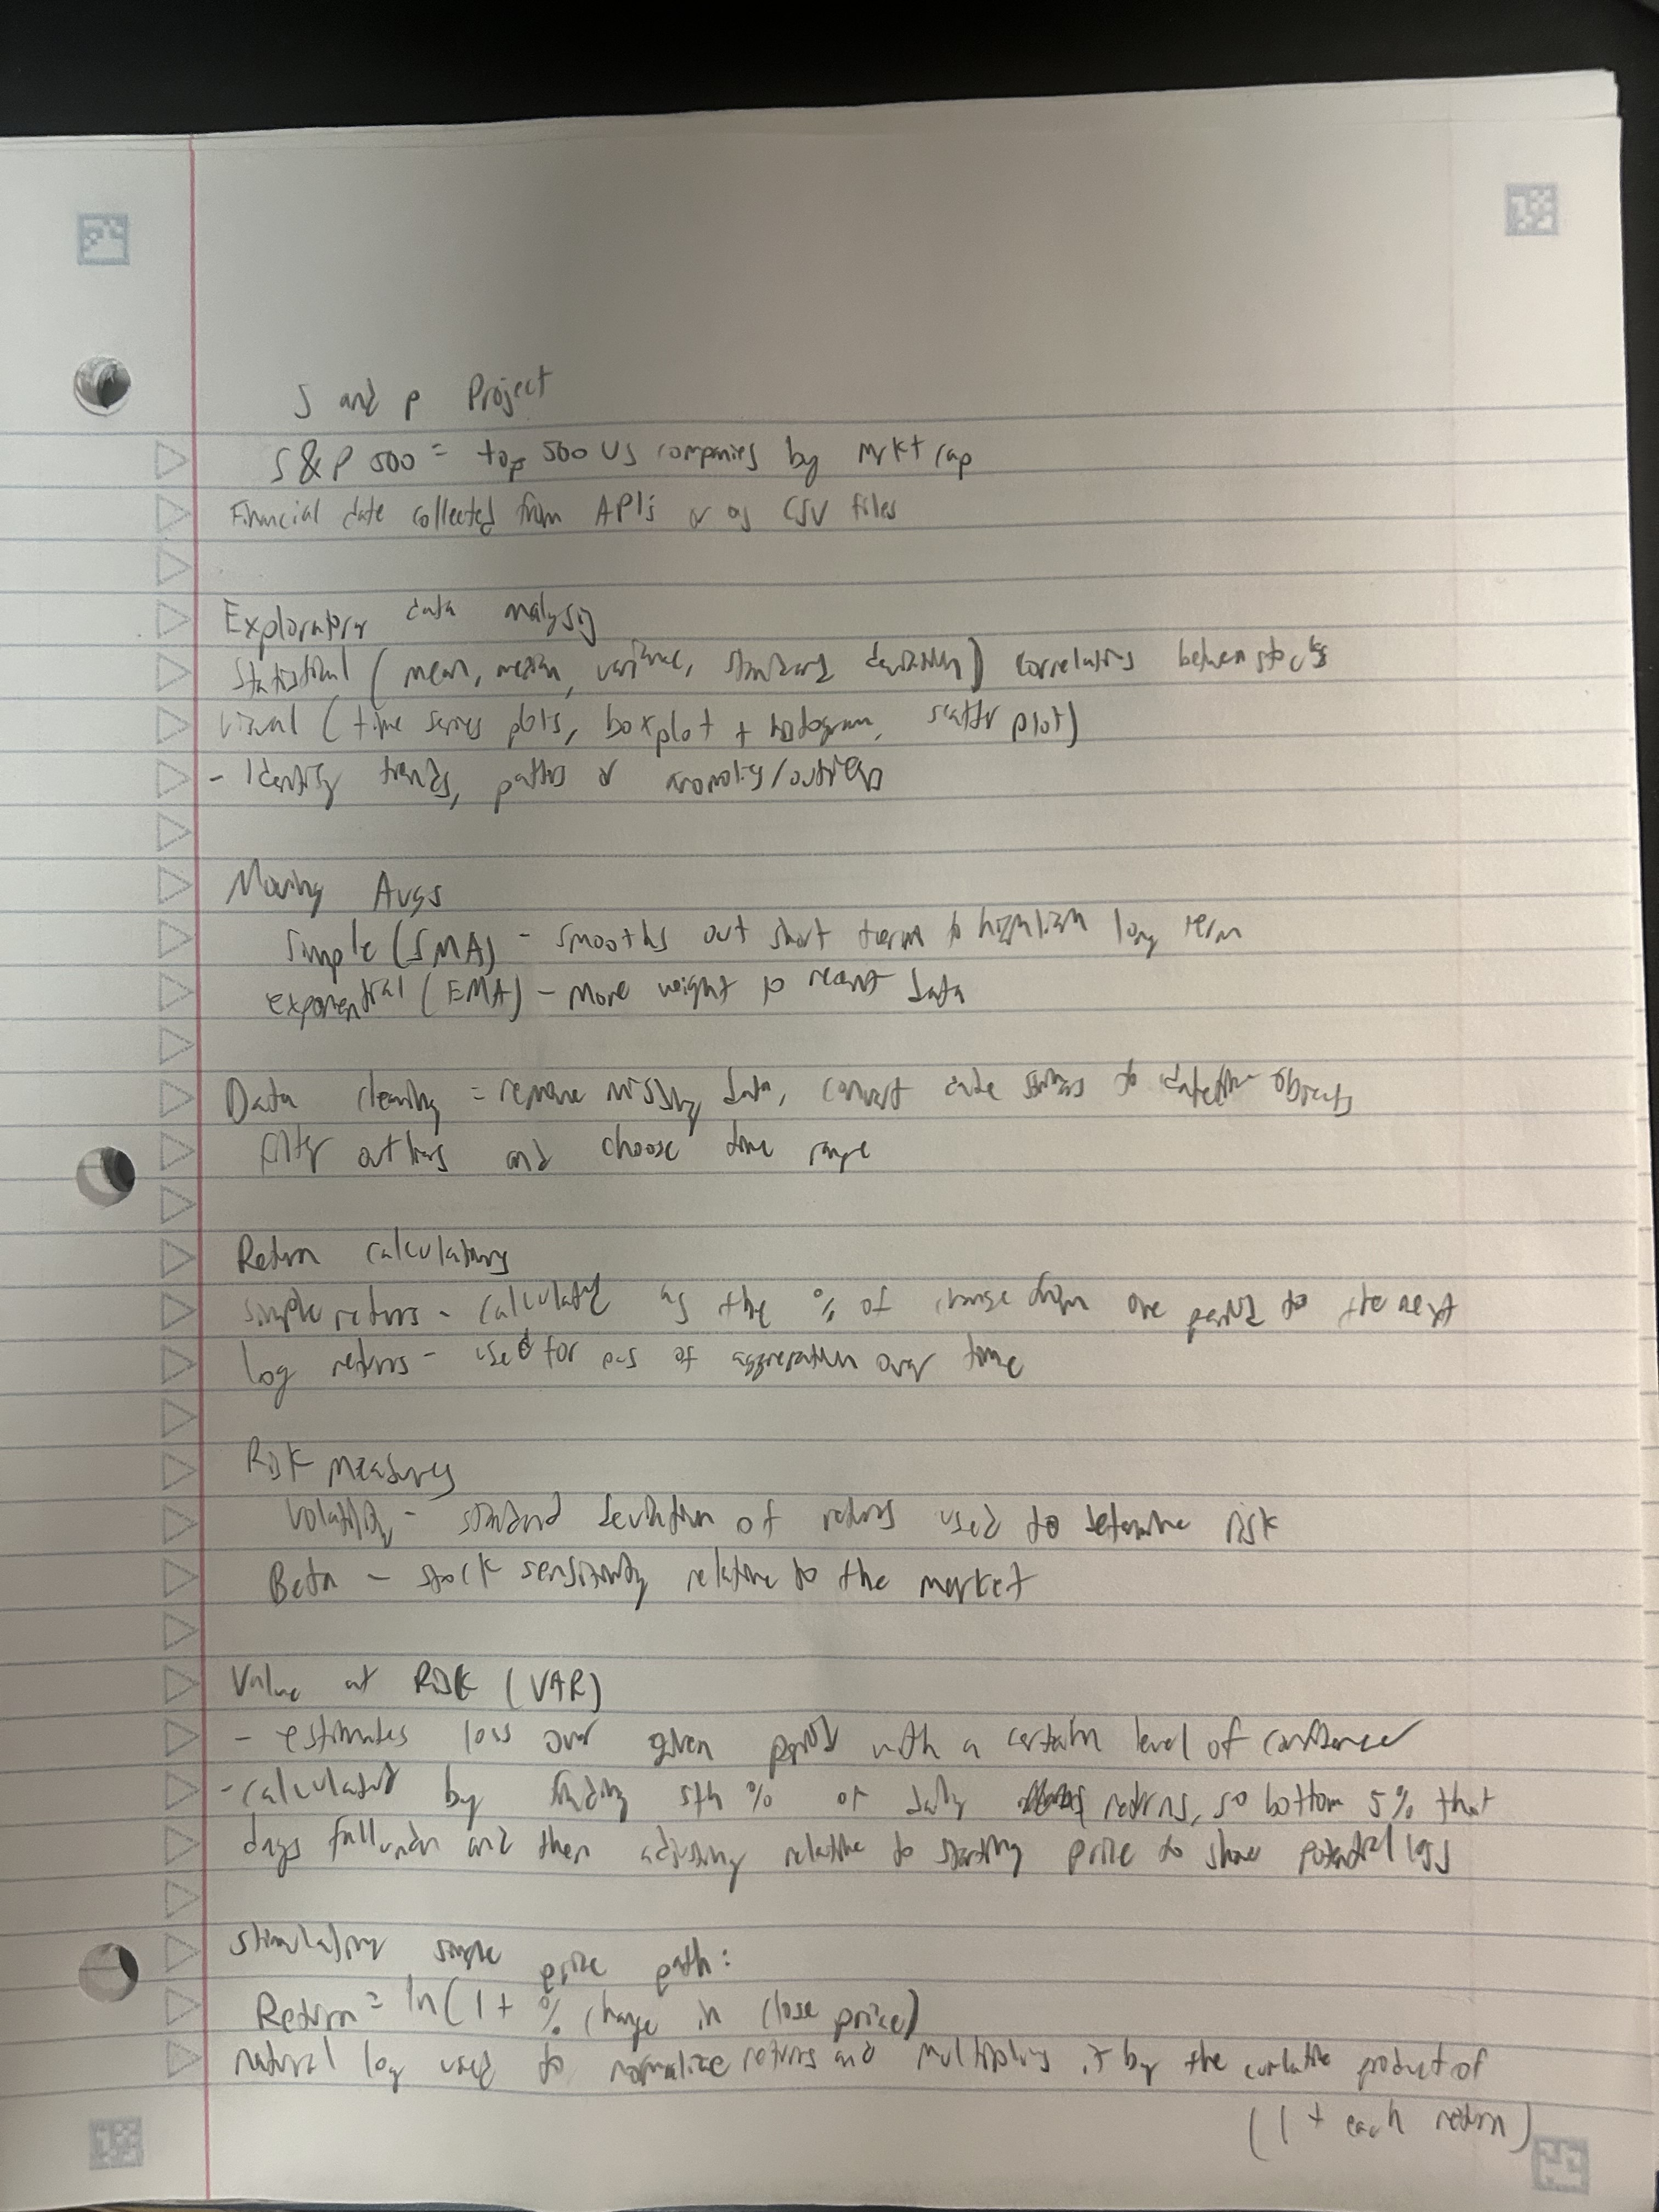 S and p Project
S&P 500 = top 500 US companies by mrkt cap
Financial date collected from APIs or as CSV files
Exploratory data analysis
Statistical (mean, median, variance, standard deviation) correlations between stocks
visual (time series plots, boxplot + histogram, scatter plot)
- Identify trends, paths or anomolies/outliers
Moving Avgs
Simple (SMA) - smooths out short term to highlight long term
exponential (EMA) - more weight to recent data
Data cleaning = remove missing data, convert date strings to datetime objects
filter outliers and choose time range
Return calculations
simple returns - calculated as the % of change from one period to the next
log returns - used for eas of aggregation over time
Risk measures
Volatility - standard deviation of returns used to determine risk
Beta - stock sensitivity relative to the market
Value at Risk (VAR)
- estimates loss over given period with a certain level of confidence
- calculated by finding 5th % of daily returns, so bottom 5% that
days fall under and then adjusting relative to starting price to show potential loss
stimulating simple price path:
Return = ln(1 + % change in close price)
natural log used to normalize returns and multiplying it by the cumlative product of
(1 + each return)